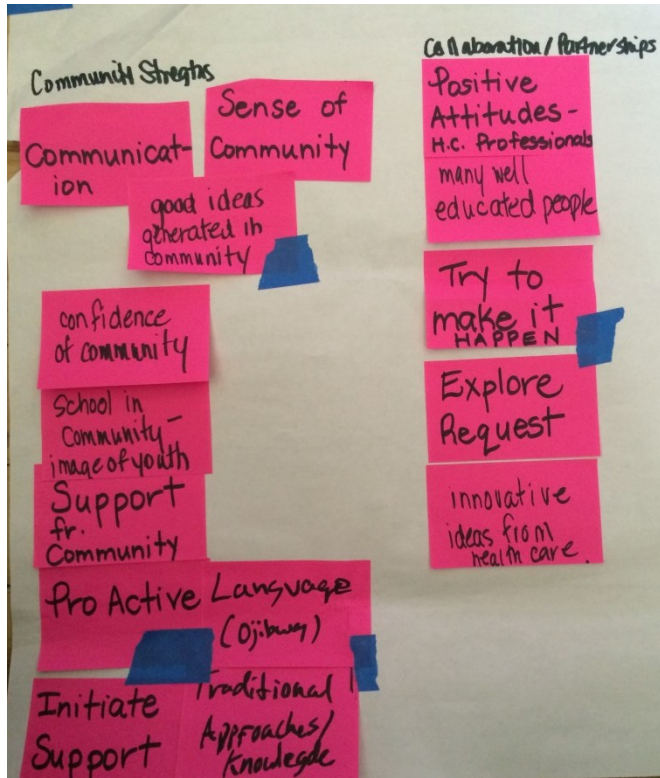 Community Stregths
Communicat-
ion
Sense of
Community
good ideas
generated in
community
confidence
of community
School in
Community -
image of youth
Support
fr.
Community
Pro Active
Language
(Ojibway)
Initiate
Support
Traditional
Approaches/
Knowlegde
Collaboration/Partnerships
Positive
Attitudes -
H.C. Professionals
many well
educated people
Try to
make it
HAPPEN
Explore
Request
innovative
ideas from
health care.